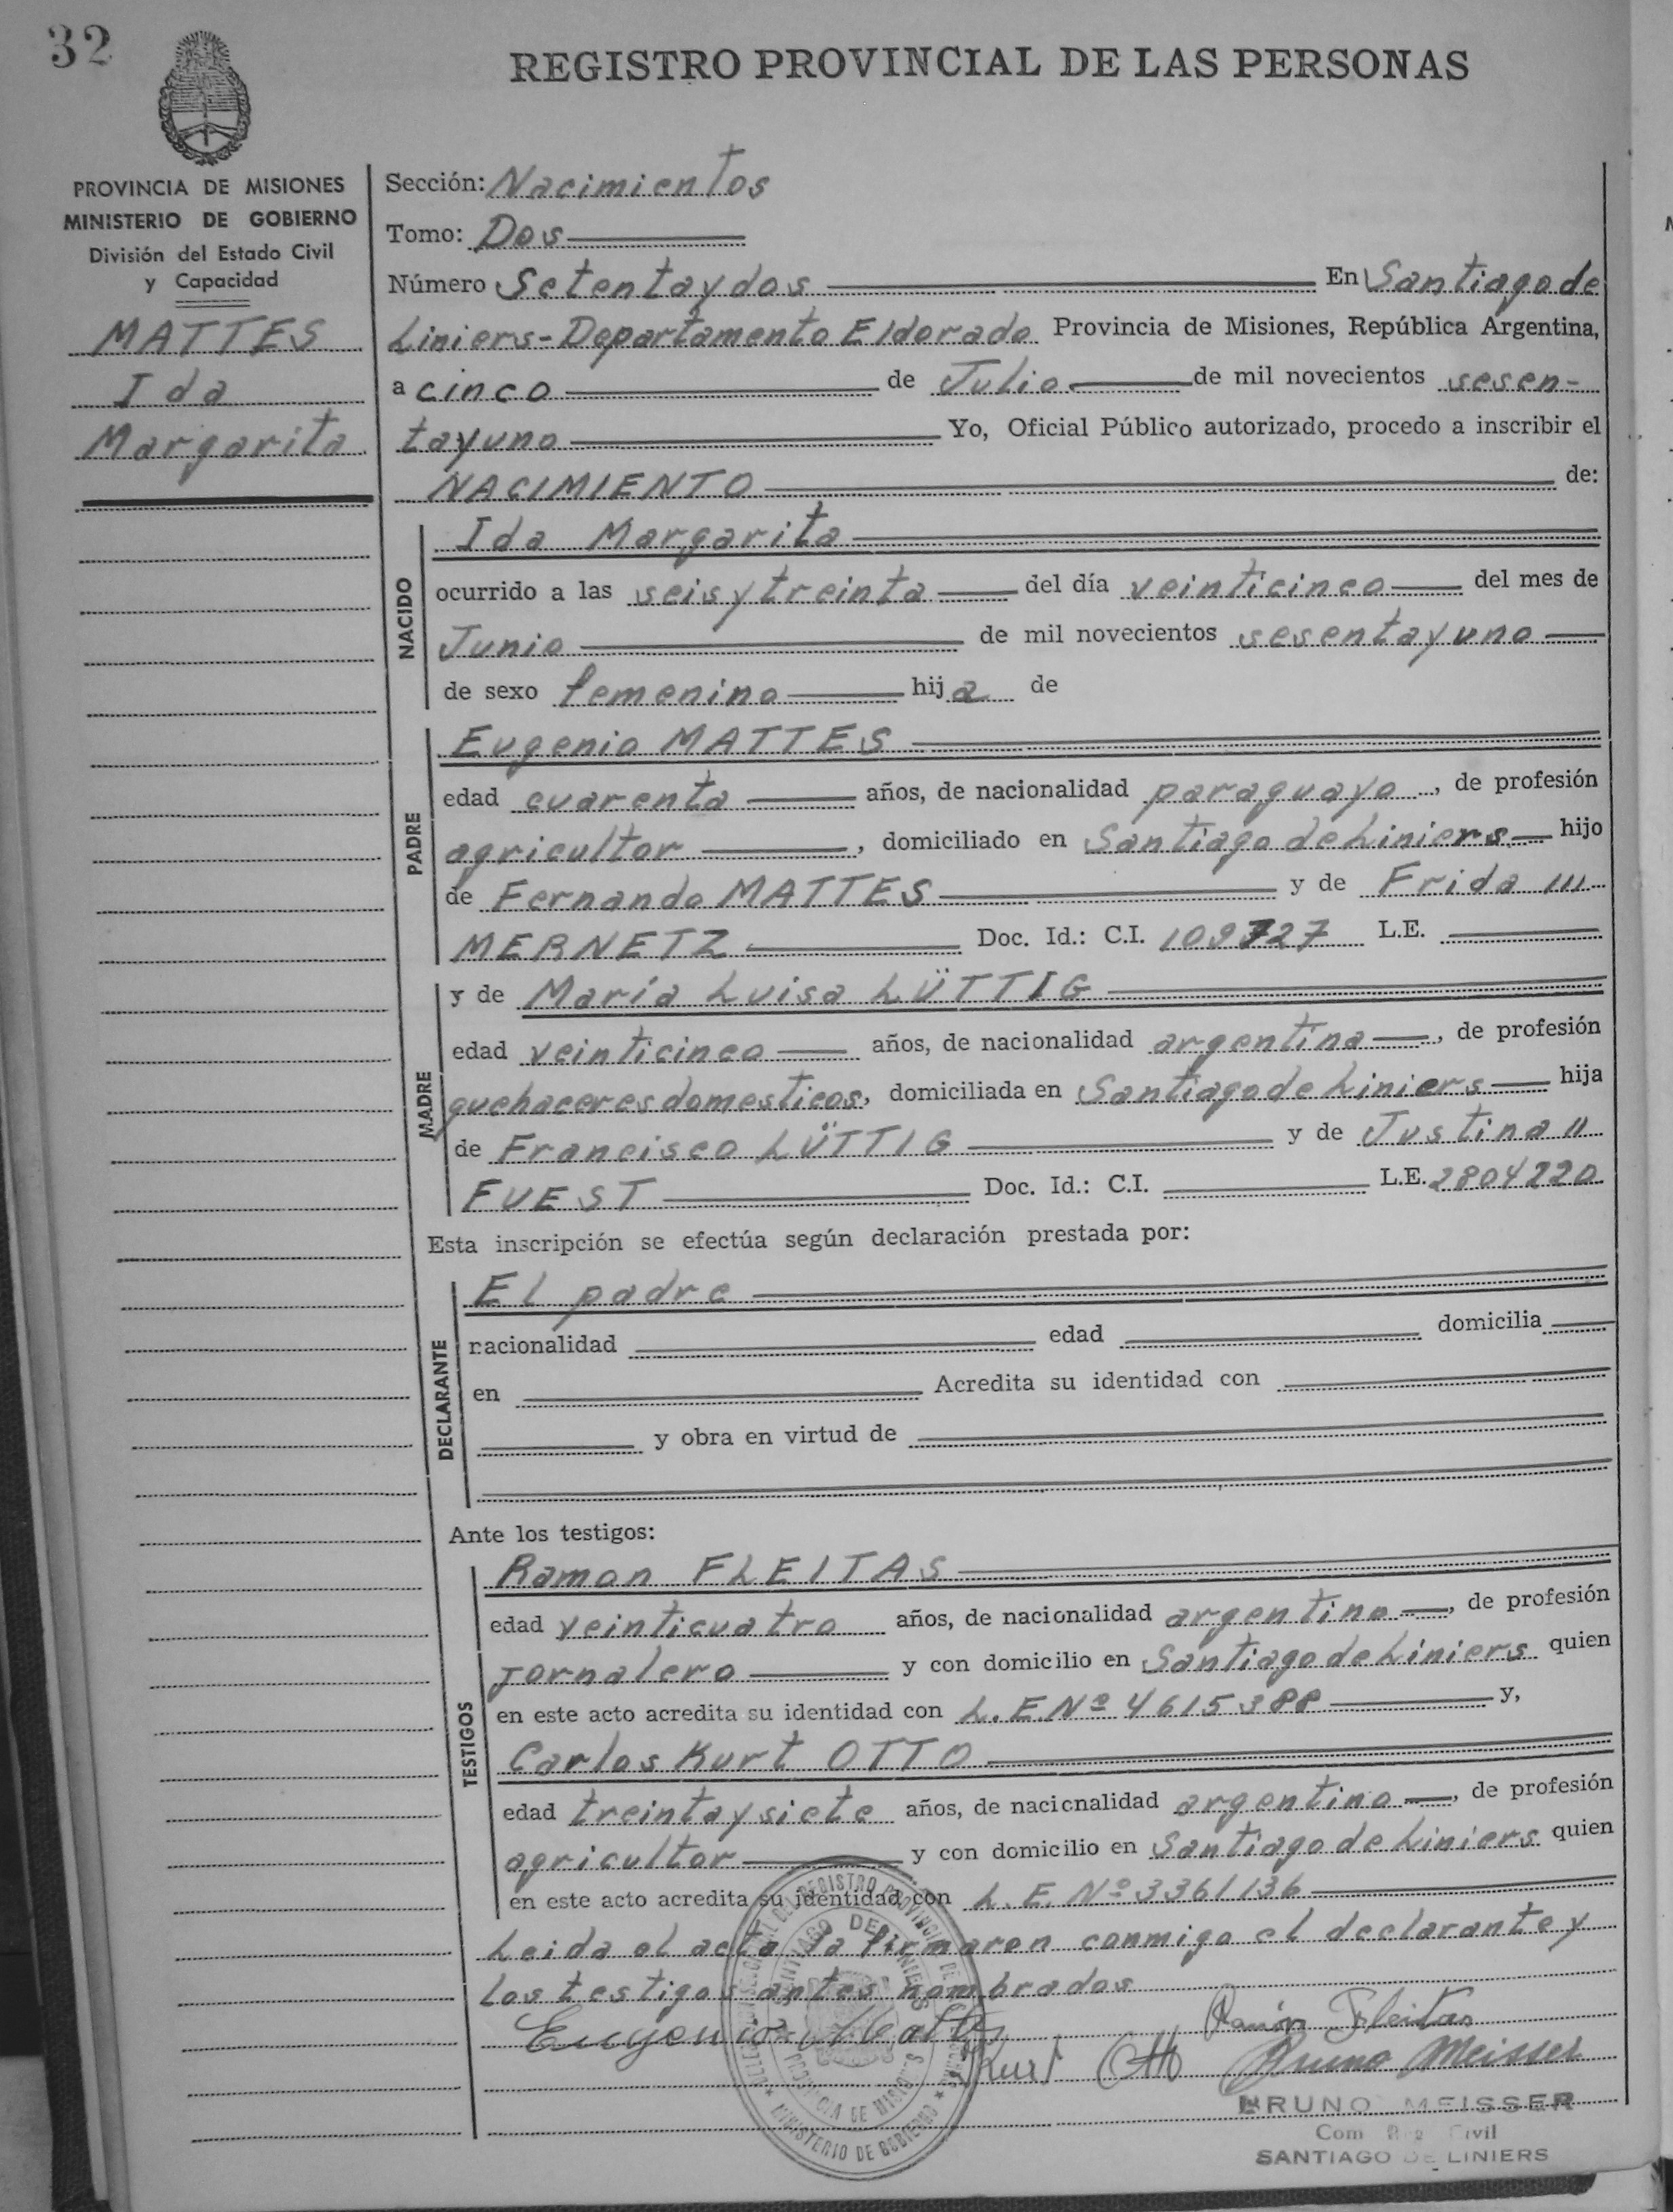 32
REGISTRO PROVINCIAL DE LAS PERSONAS
PROVINCIA DE MISIONES
MINISTERIO DE GOBIERNO
División del Estado Civil
y Capacidad
MATTES
Ida
Margarita
Sección: Nacimientos
Tomo: Dos
Número Setentaydos En Santiago de
Liniers-Departamento Eldorado Provincia de Misiones, República Argentina,
a cinco de Julio de mil novecientos sesen-
tayuno Yo, Oficial Público autorizado, procedo a inscribir el
NACIMIENTO de:
NACIDO
Ida Margarita
ocurrido a las seisytreinta del día veinticinco del mes de
Junio de mil novecientos sesentayuno
de sexo femenino hija de
PADRE
Eugenio MATTES
edad cuarenta años, de nacionalidad paraguayo, de profesión
agricultor, domiciliado en Santiago de Liniers hijo
de Fernando MATTES y de Frida
MERNETZ Doc. Id.: C.I. 109727 L.E.
MADRE
y de María Luisa LÜTTIG
edad veinticinco años, de nacionalidad argentina, de profesión
quehaceres domesticos, domiciliada en Santiago de Liniers hija
de Francisco LÜTTIG y de Justina
FUEST Doc. Id.: C.I. L.E. 2804220
Esta inscripción se efectúa según declaración prestada por:
DECLARANTE
El padre
nacionalidad edad domicilia
en Acredita su identidad con
y obra en virtud de
Ante los testigos:
TESTIGOS
Ramon FLEITAS
edad veinticuatro años, de nacionalidad argentino, de profesión
jornalero y con domicilio en Santiago de Liniers quien
en este acto acredita su identidad con L.E.Nº 4615388 y,
Carlos Kurt OTTO
edad treintaysiete años, de nacionalidad argentino, de profesión
agricultor y con domicilio en Santiago de Liniers quien
en este acto acredita su identidad con L.E.Nº 3361136
Leida el acta la firmaron conmigo el declarante y
los testigos antes nombrados
Eugenio Mattes
Ramón Fleitas
Kurt Otto Bruno Meisser
BRUNO MEISSER
Com Reg Civil
SANTIAGO DE LINIERS
DEL REGISTRO PROVINCIAL DE
SANTIAGO DE LINIERS
PROVINCIA DE MISIONES
MINISTERIO DE GOBIERNO